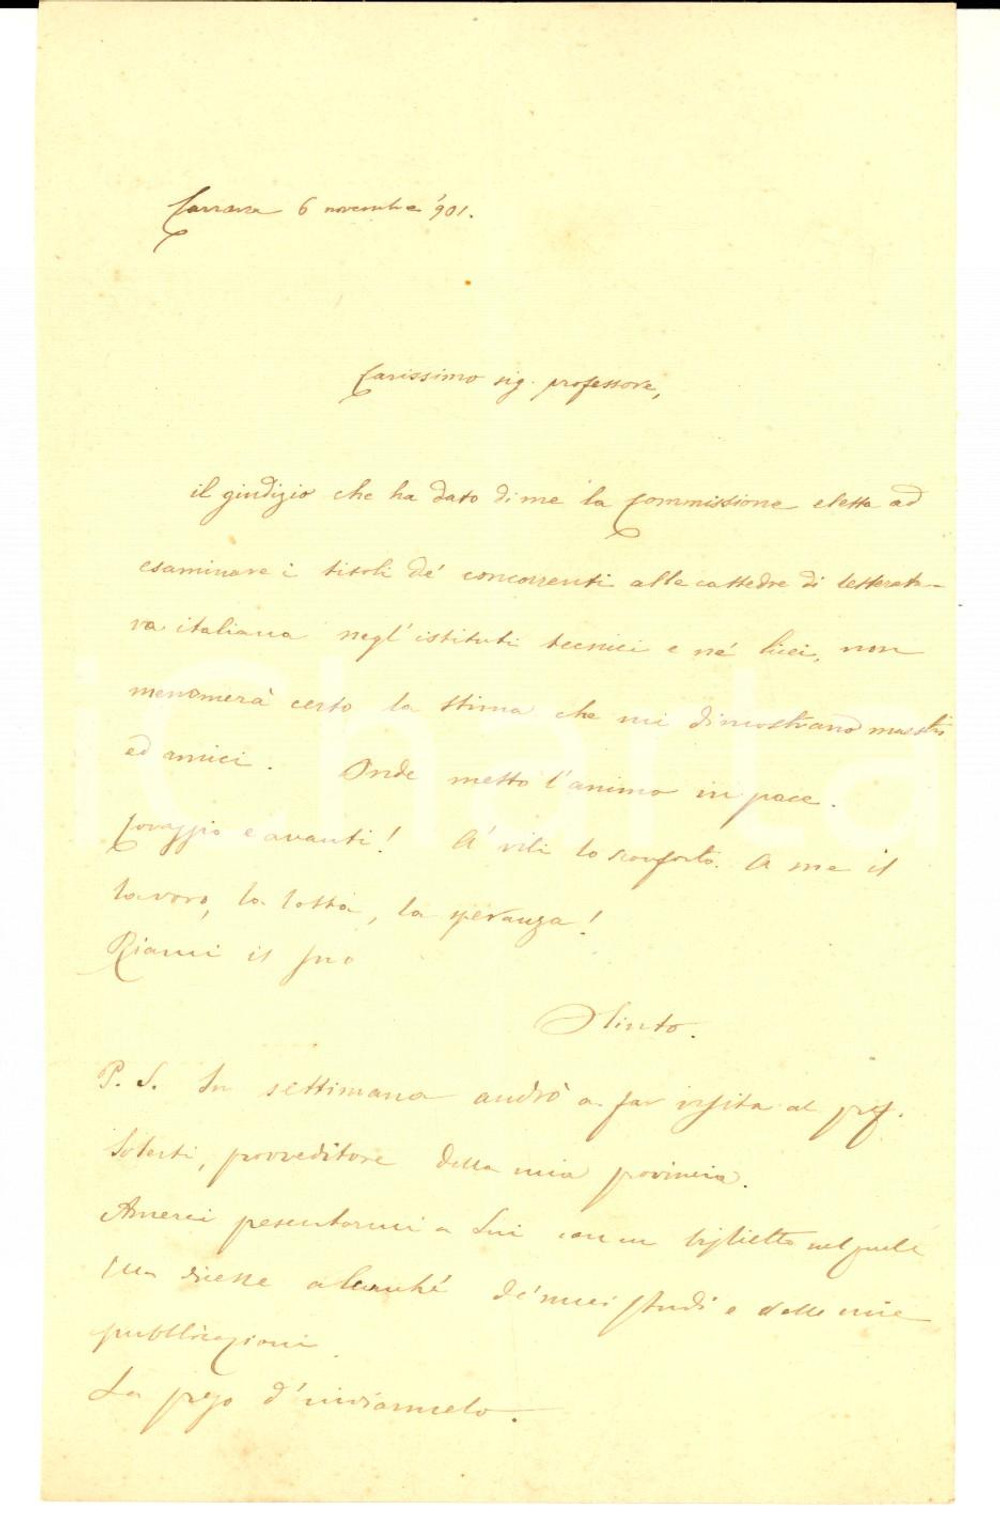 Carrara 6 novembre '901.
Carissimo sig. professore,
il giudizio che ha dato di me la Commissione eletta ad
esaminare i titoli de' concorrenti alle cattedre di letteratu-
ra italiana negl'istituti tecnici e ne' licei, non
menomerà certo la stima che mi dimostrano maestri
ed amici. Onde metto l'animo in pace.
Coraggio e avanti! A' vili lo sconforto. A me il
lavoro, la lotta, la speranza!
Riami il suo
Olinto.
P. S. In settimana andrò a far visita al prof.
Solerti, provveditore della mia provincia.
Amerei presentarmi a Lui con un biglietto nel quale
si dicesse alcunché de' miei studi e delle mie
pubblicazioni.
La prego d'inviarmelo.